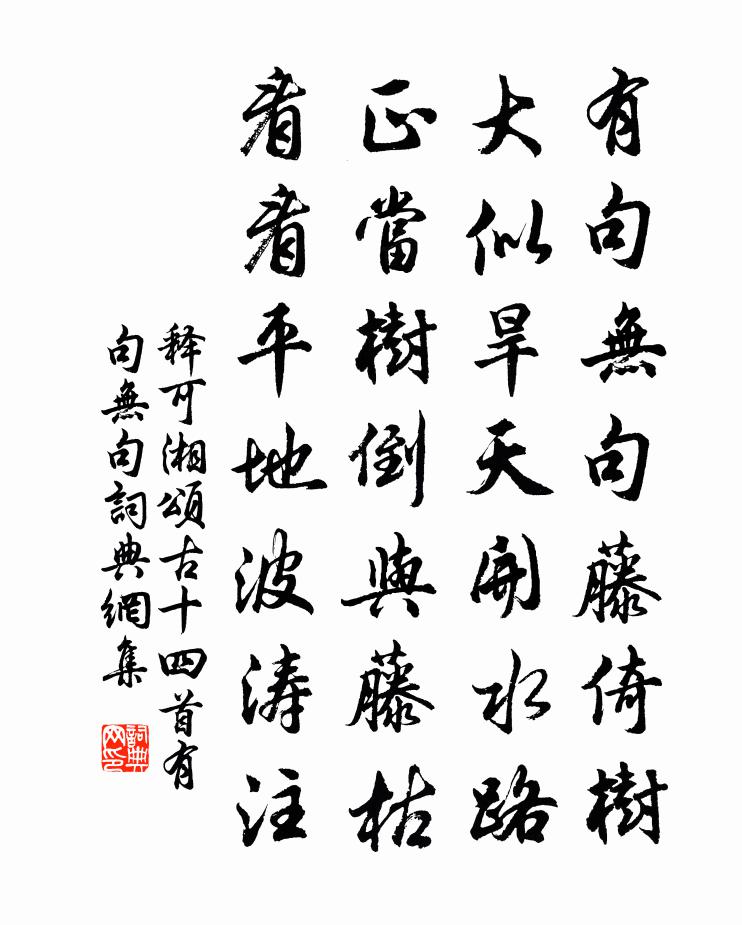 有句無句藤倚樹
大似旱天開水路
正當樹倒與藤枯
看看平地波涛注
释可湘頌古十四首有
句無句詞典網集
詞典网印